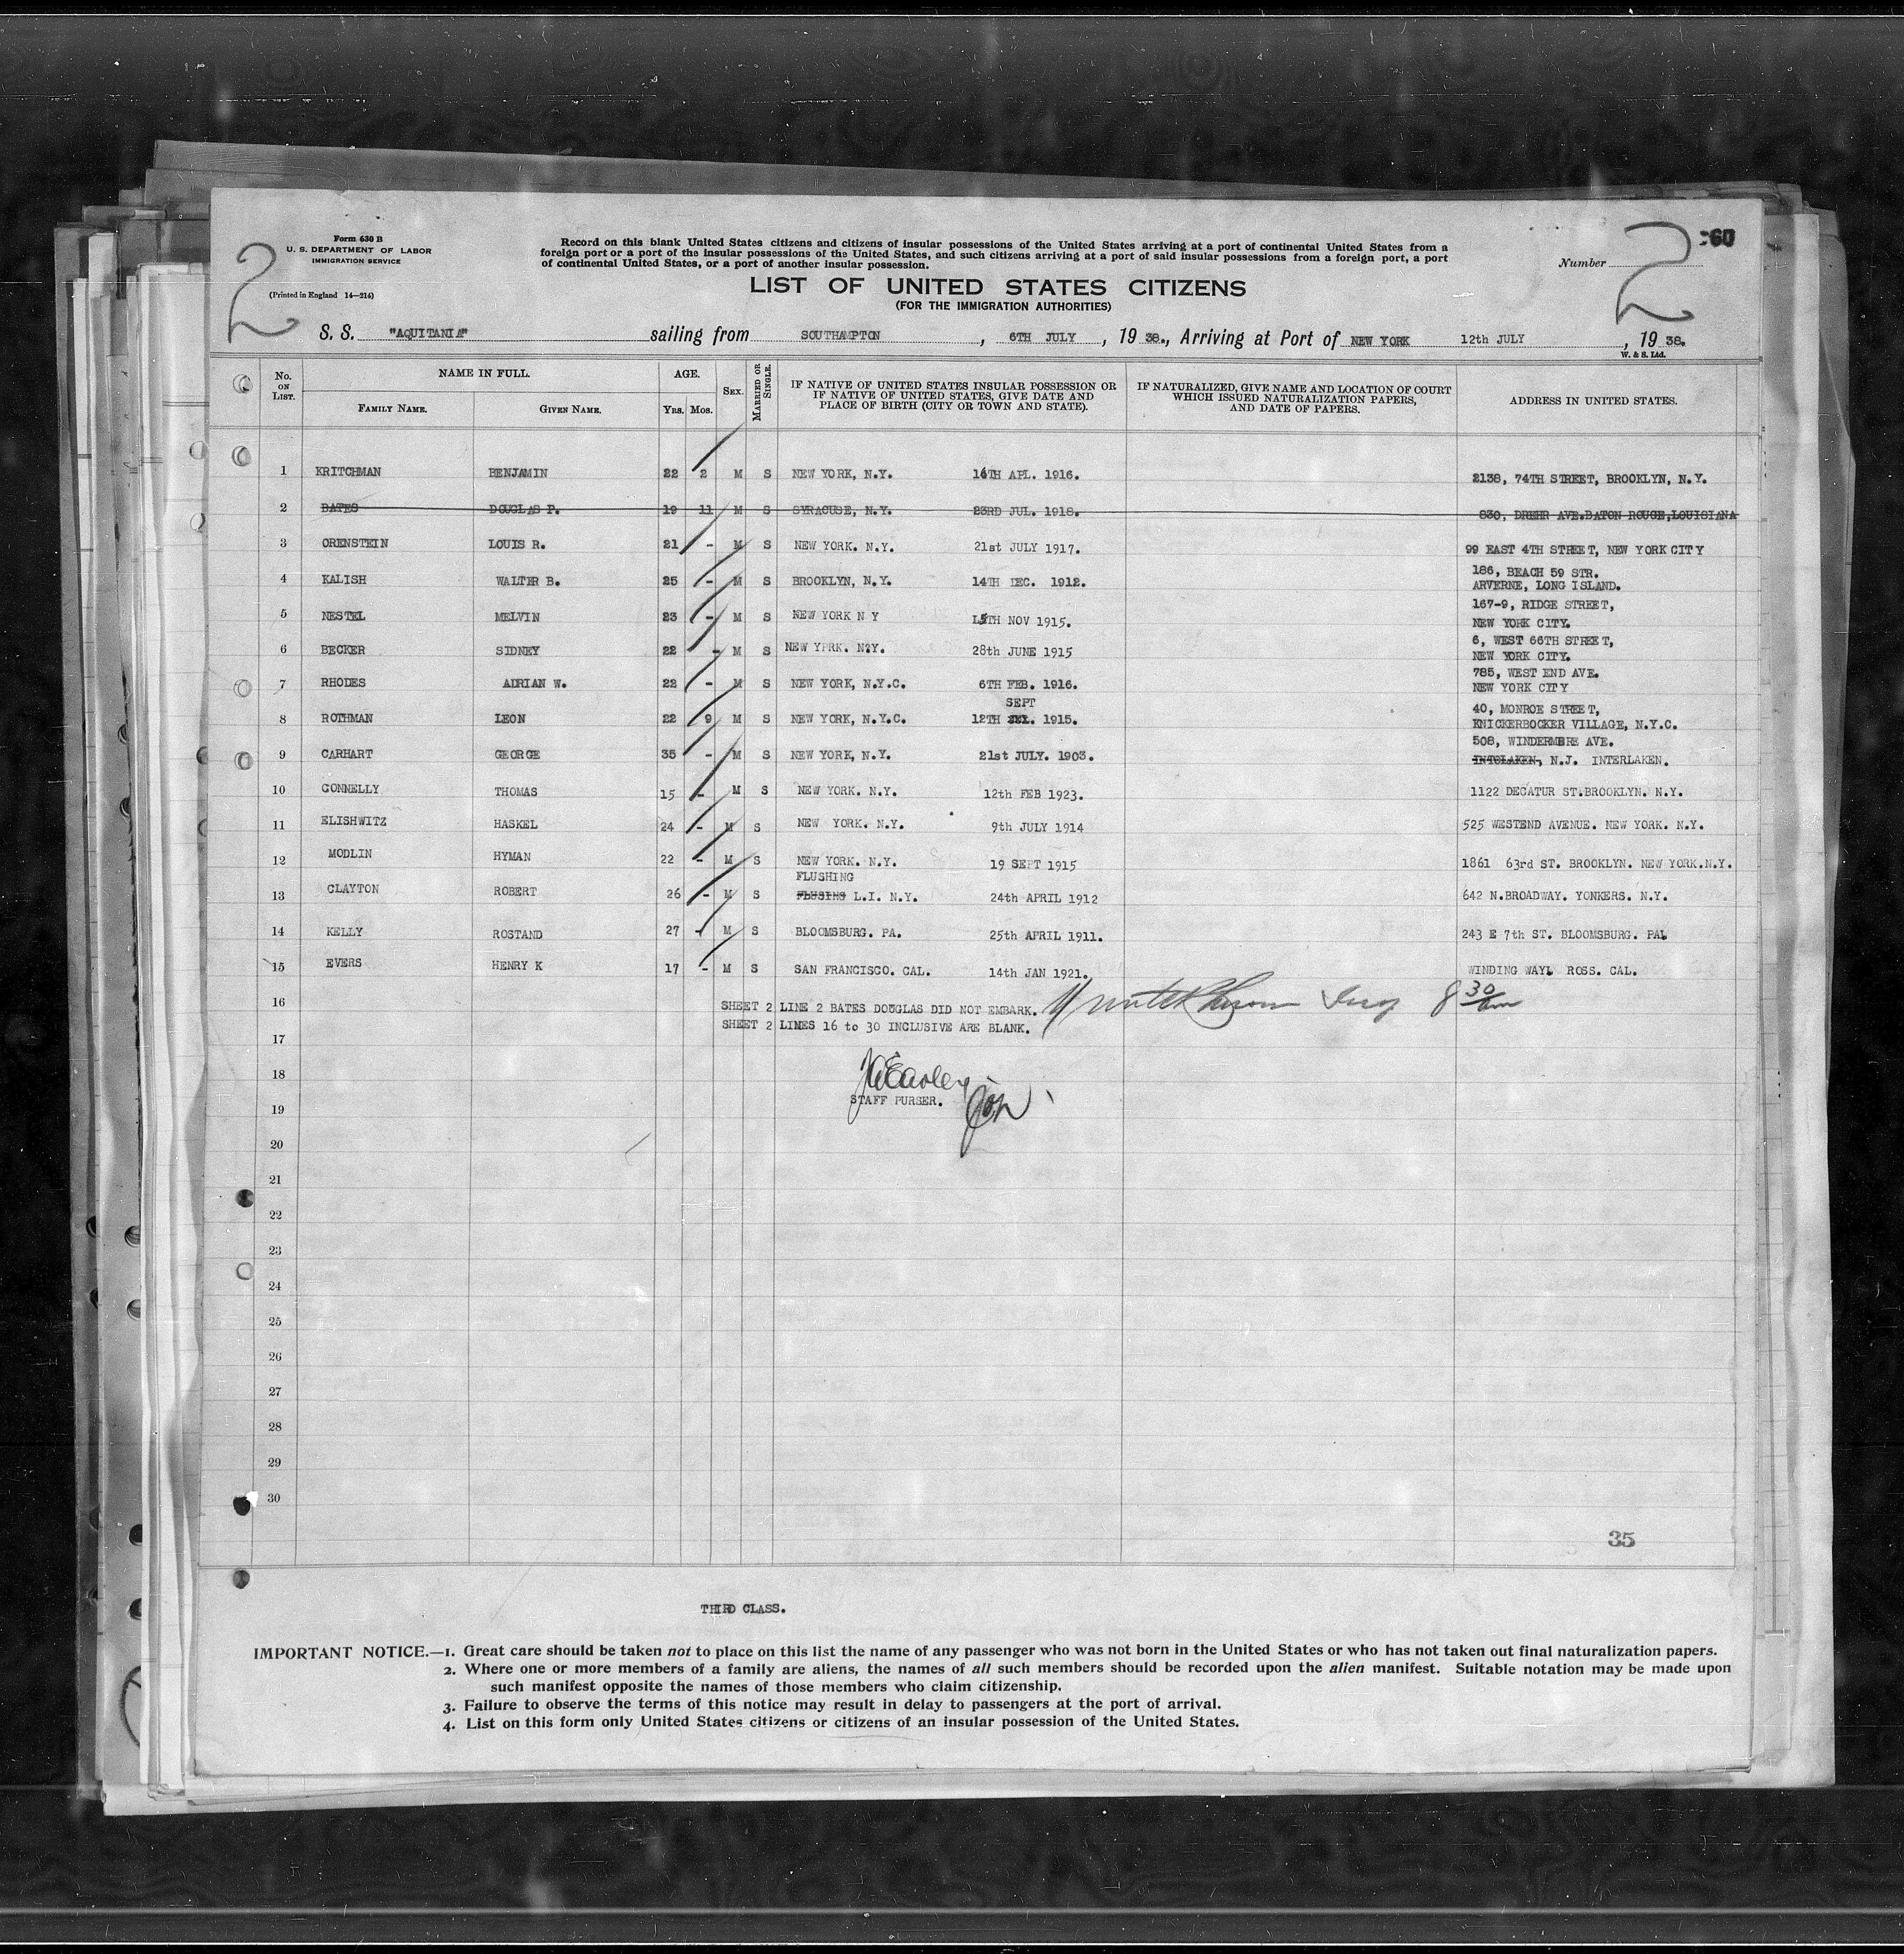 Form 630 B
U. S. DEPARTMENT OF LABOR
IMMIGRATION SERVICE
(Printed in England 14—214)
2
Record on this blank United States citizens and citizens of insular possessions of the United States arriving at a port of continental United States from a
foreign port or a port of the insular possessions of the United States, and such citizens arriving at a port of said insular possessions from a foreign port, a port
of continental United States, or a port of another insular possession.
LIST OF UNITED STATES CITIZENS
(FOR THE IMMIGRATION AUTHORITIES)
Number 2 60
S. S. "AQUITANIA" sailing from SOUTHAMPTON, 6TH JULY, 19 38., Arriving at Port of NEW YORK 12th JULY, 19 38.
W. & S. Ltd.
No. ON LIST. NAME IN FULL. FAMILY NAME. GIVEN NAME. AGE. Yrs. Mos. SEX. MARRIED OR SINGLE. IF NATIVE OF UNITED STATES INSULAR POSSESSION OR IF NATIVE OF UNITED STATES, GIVE DATE AND PLACE OF BIRTH (CITY OR TOWN AND STATE). IF NATURALIZED, GIVE NAME AND LOCATION OF COURT WHICH ISSUED NATURALIZATION PAPERS, AND DATE OF PAPERS. ADDRESS IN UNITED STATES.
1 KRITCHMAN BENJAMIN 22 2 M S NEW YORK, N.Y. 16TH APL. 1916. 2138, 74TH STREET, BROOKLYN, N.Y.
2 BATES DOUGLAS P. 19 11 M S SYRACUSE, N.Y. 23RD JUL. 1918. 830, DREHR AVE.BATON ROUGE,LOUISIANA
3 ORENSTEIN LOUIS R. 21 - M S NEW YORK. N.Y. 21st JULY 1917. 99 EAST 4TH STREET, NEW YORK CITY
4 KALISH WALTER B. 25 - M S BROOKLYN, N.Y. 14TH DEC. 1912. 186, BEACH 59 STR.
ARVERNE, LONG ISLAND.
5 NESTEL MELVIN 23 - M S NEW YORK N Y 15TH NOV 1915. 167-9, RIDGE STREET,
NEW YORK CITY.
6 BECKER SIDNEY 22 - M S NEW YPRK. N?Y. 28th JUNE 1915 6, WEST 66TH STREET,
NEW YORK CITY.
7 RHODES ADRIAN W. 22 - M S NEW YORK, N.Y.C. 6TH FEB. 1916. 785, WEST END AVE.
NEW YORK CITY
SEPT
8 ROTHMAN LEON 22 9 M S NEW YORK, N.Y.C. 12TH 1915. 40, MONROE STREET,
KNICKERBOCKER VILLAGE, N.Y.C.
9 CARHART GEORGE 35 - M S NEW YORK, N.Y. 21st JULY. 1903. 508, WINDERMERE AVE.
INTCLAKEN, N.J. INTERLAKEN.
10 CONNELLY THOMAS 15 - M S NEW YORK. N.Y. 12th FEB 1923. 1122 DECATUR ST.BROOKLYN. N.Y.
11 ELISHWITZ HASKEL 24 - M S NEW YORK. N.Y. 9th JULY 1914 525 WESTEND AVENUE. NEW YORK. N.Y.
12 MODLIN HYMAN 22 - M S NEW YORK. N.Y. 19 SEPT 1915 1861 63rd ST. BROOKLYN. NEW YORK.N.Y.
FLUSHING
13 CLAYTON ROBERT 26 - M S FLUSING L.I. N.Y. 24th APRIL 1912 642 N.BROADWAY. YONKERS. N.Y.
14 KELLY ROSTAND 27 - M S BLOOMSBURG. PA. 25th APRIL 1911. 243 E 7th ST. BLOOMSBURG. PA.
15 EVERS HENRY K 17 - M S SAN FRANCISCO. CAL. 14th JAN 1921. WINDING WAY. ROSS. CAL.
16 SHEET 2 LINE 2 BATES DOUGLAS DID NOT EMBARK. 8 30 am
SHEET 2 LINES 16 to 30 INCLUSIVE ARE BLANK.
17
18
STAFF PURSER.
19
20
21
22
23
24
25
26
27
28
29
30
35
THIRD CLASS.
IMPORTANT NOTICE.—1. Great care should be taken not to place on this list the name of any passenger who was not born in the United States or who has not taken out final naturalization papers.
2. Where one or more members of a family are aliens, the names of all such members should be recorded upon the alien manifest. Suitable notation may be made upon
such manifest opposite the names of those members who claim citizenship.
3. Failure to observe the terms of this notice may result in delay to passengers at the port of arrival.
4. List on this form only United States citizens or citizens of an insular possession of the United States.